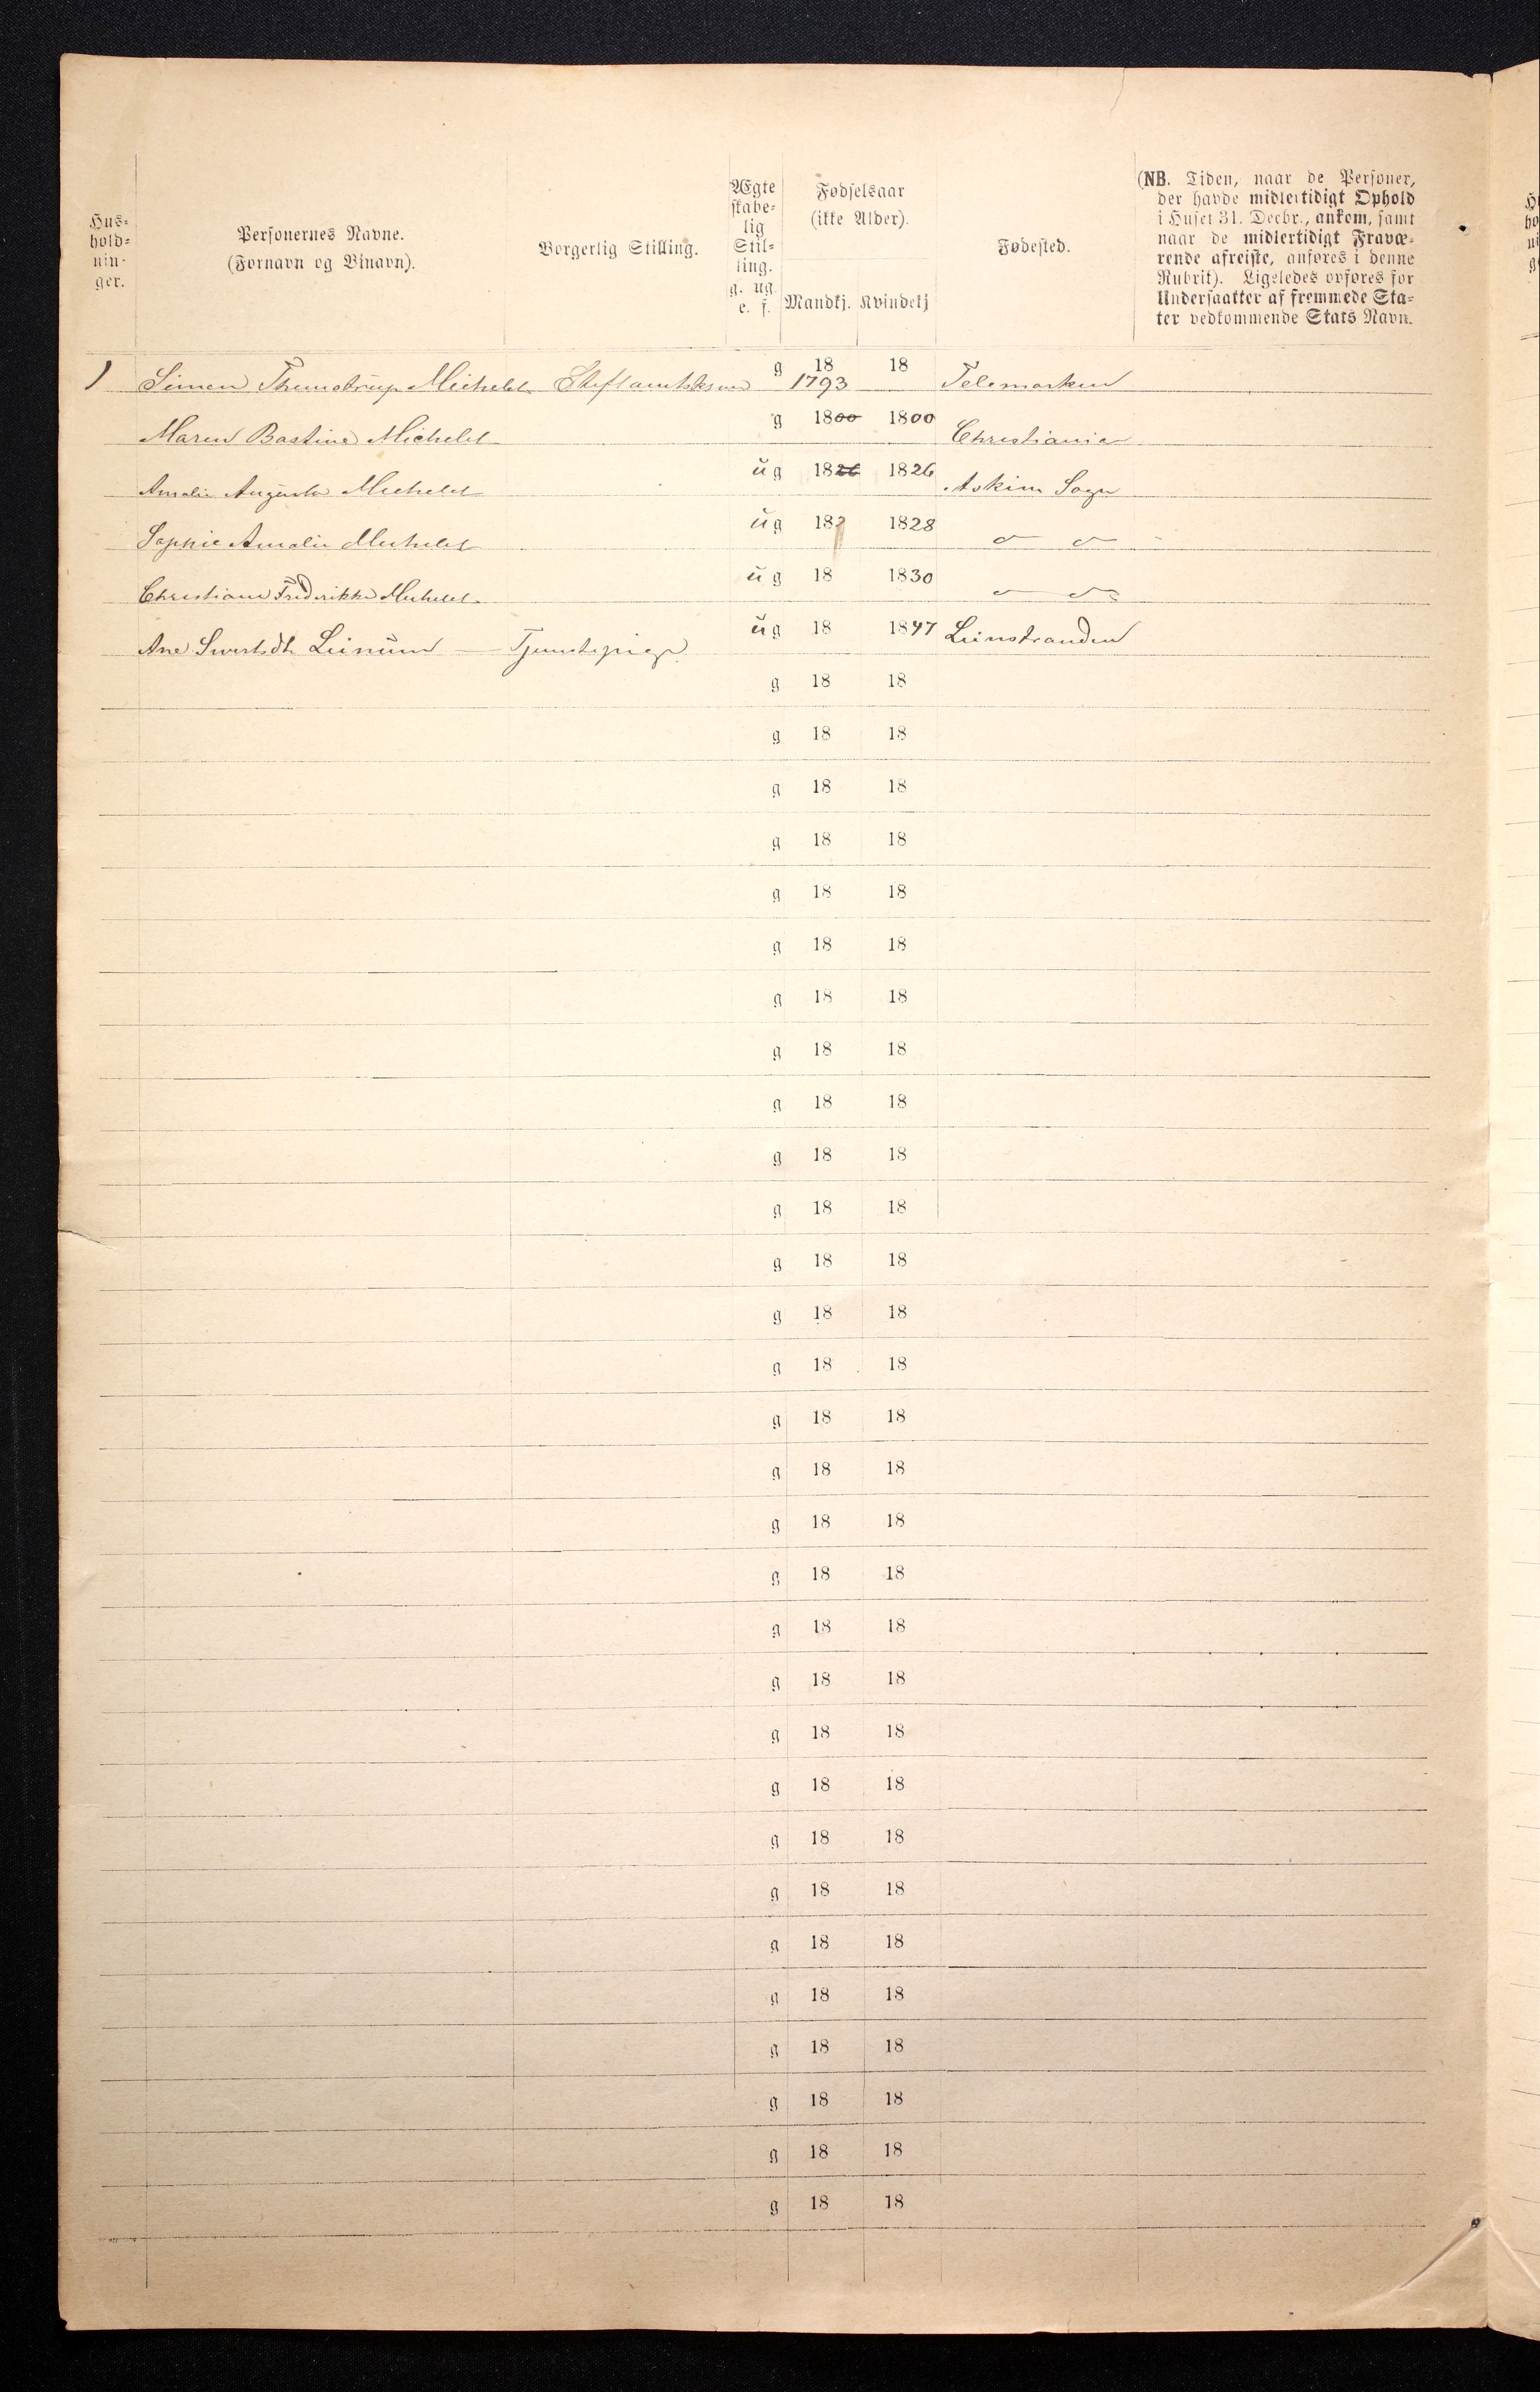 Hus-
hold-
nin-
ger.
Personernes Navne.
(Fornavn og Binavn).
Borgerlig Stilling.
Ægte
skabe-
lig
Stil-
ling.
g. ug.
e. f.
Fødselsaar
(ikke Alder).
Mandkj. Kvindekj
Fødested.
(NB. Tiden, naar de Personer,
der havde midlertidigt Ophold
i Huset 31. Decbr., ankom, samt
naar de midlertidigt Fravæ-
rende afreiste, anføres i denne
Rubrik). Ligeledes opføres for
Undersaatter af fremmede Sta-
ter vedkommende Stats Navn.
1 Simen Michelet g 18 1793 18 Telemarken
Maren Bastine Michelet g 1800 1800 Christiania
Amalie Augusta Michelet ug 1826 1826 Askim Sogn
Sophie Amalie Michelet ug 182 1828
Christiane Frederikke Michelet ug 18 1830
Ane Leinum — Tjenestepige ug 18 1847 Leinstranden
g 18 18
g 18 18
g 18 18
g 18 18
g 18 18
g 18 18
g 18 18
g 18 18
g 18 18
g 18 18
g 18 18
g 18 18
g 18 18
g 18 18
g 18 18
g 18 18
g 18 18
g 18 18
g 18 18
g 18 18
g 18 18
g 18 18
g 18 18
g 18 18
g 18 18
g 18 18
g 18 18
g 18 18
g 18 18
g 18 18